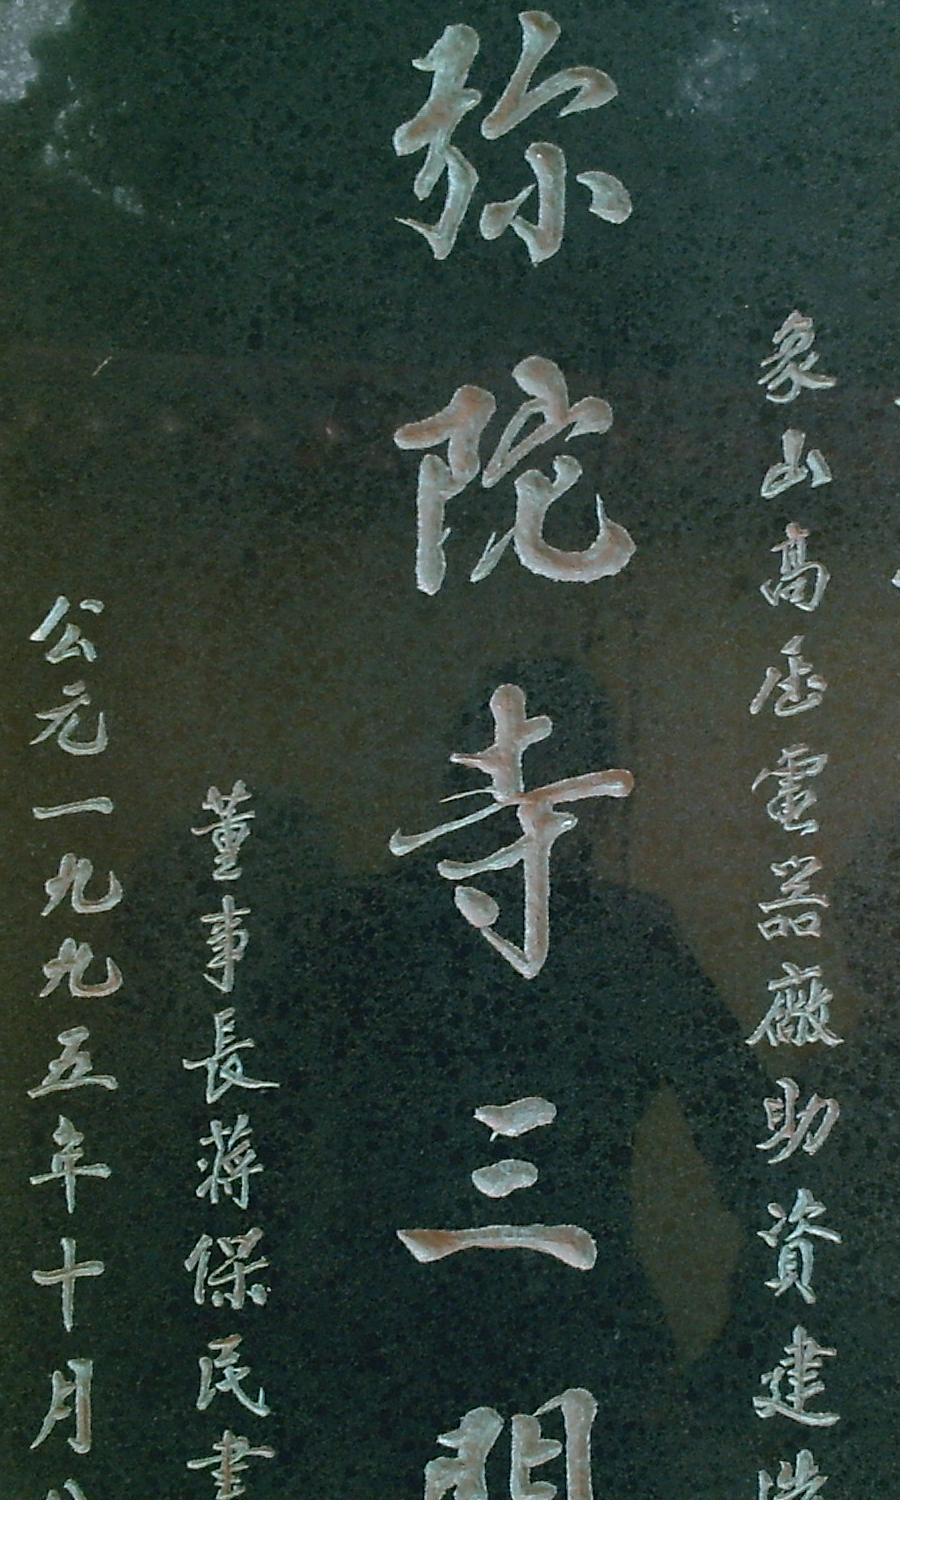 象山高压電器廠助資建
弥陀寺三
董事長蒋保民書
公元一九九五年十月